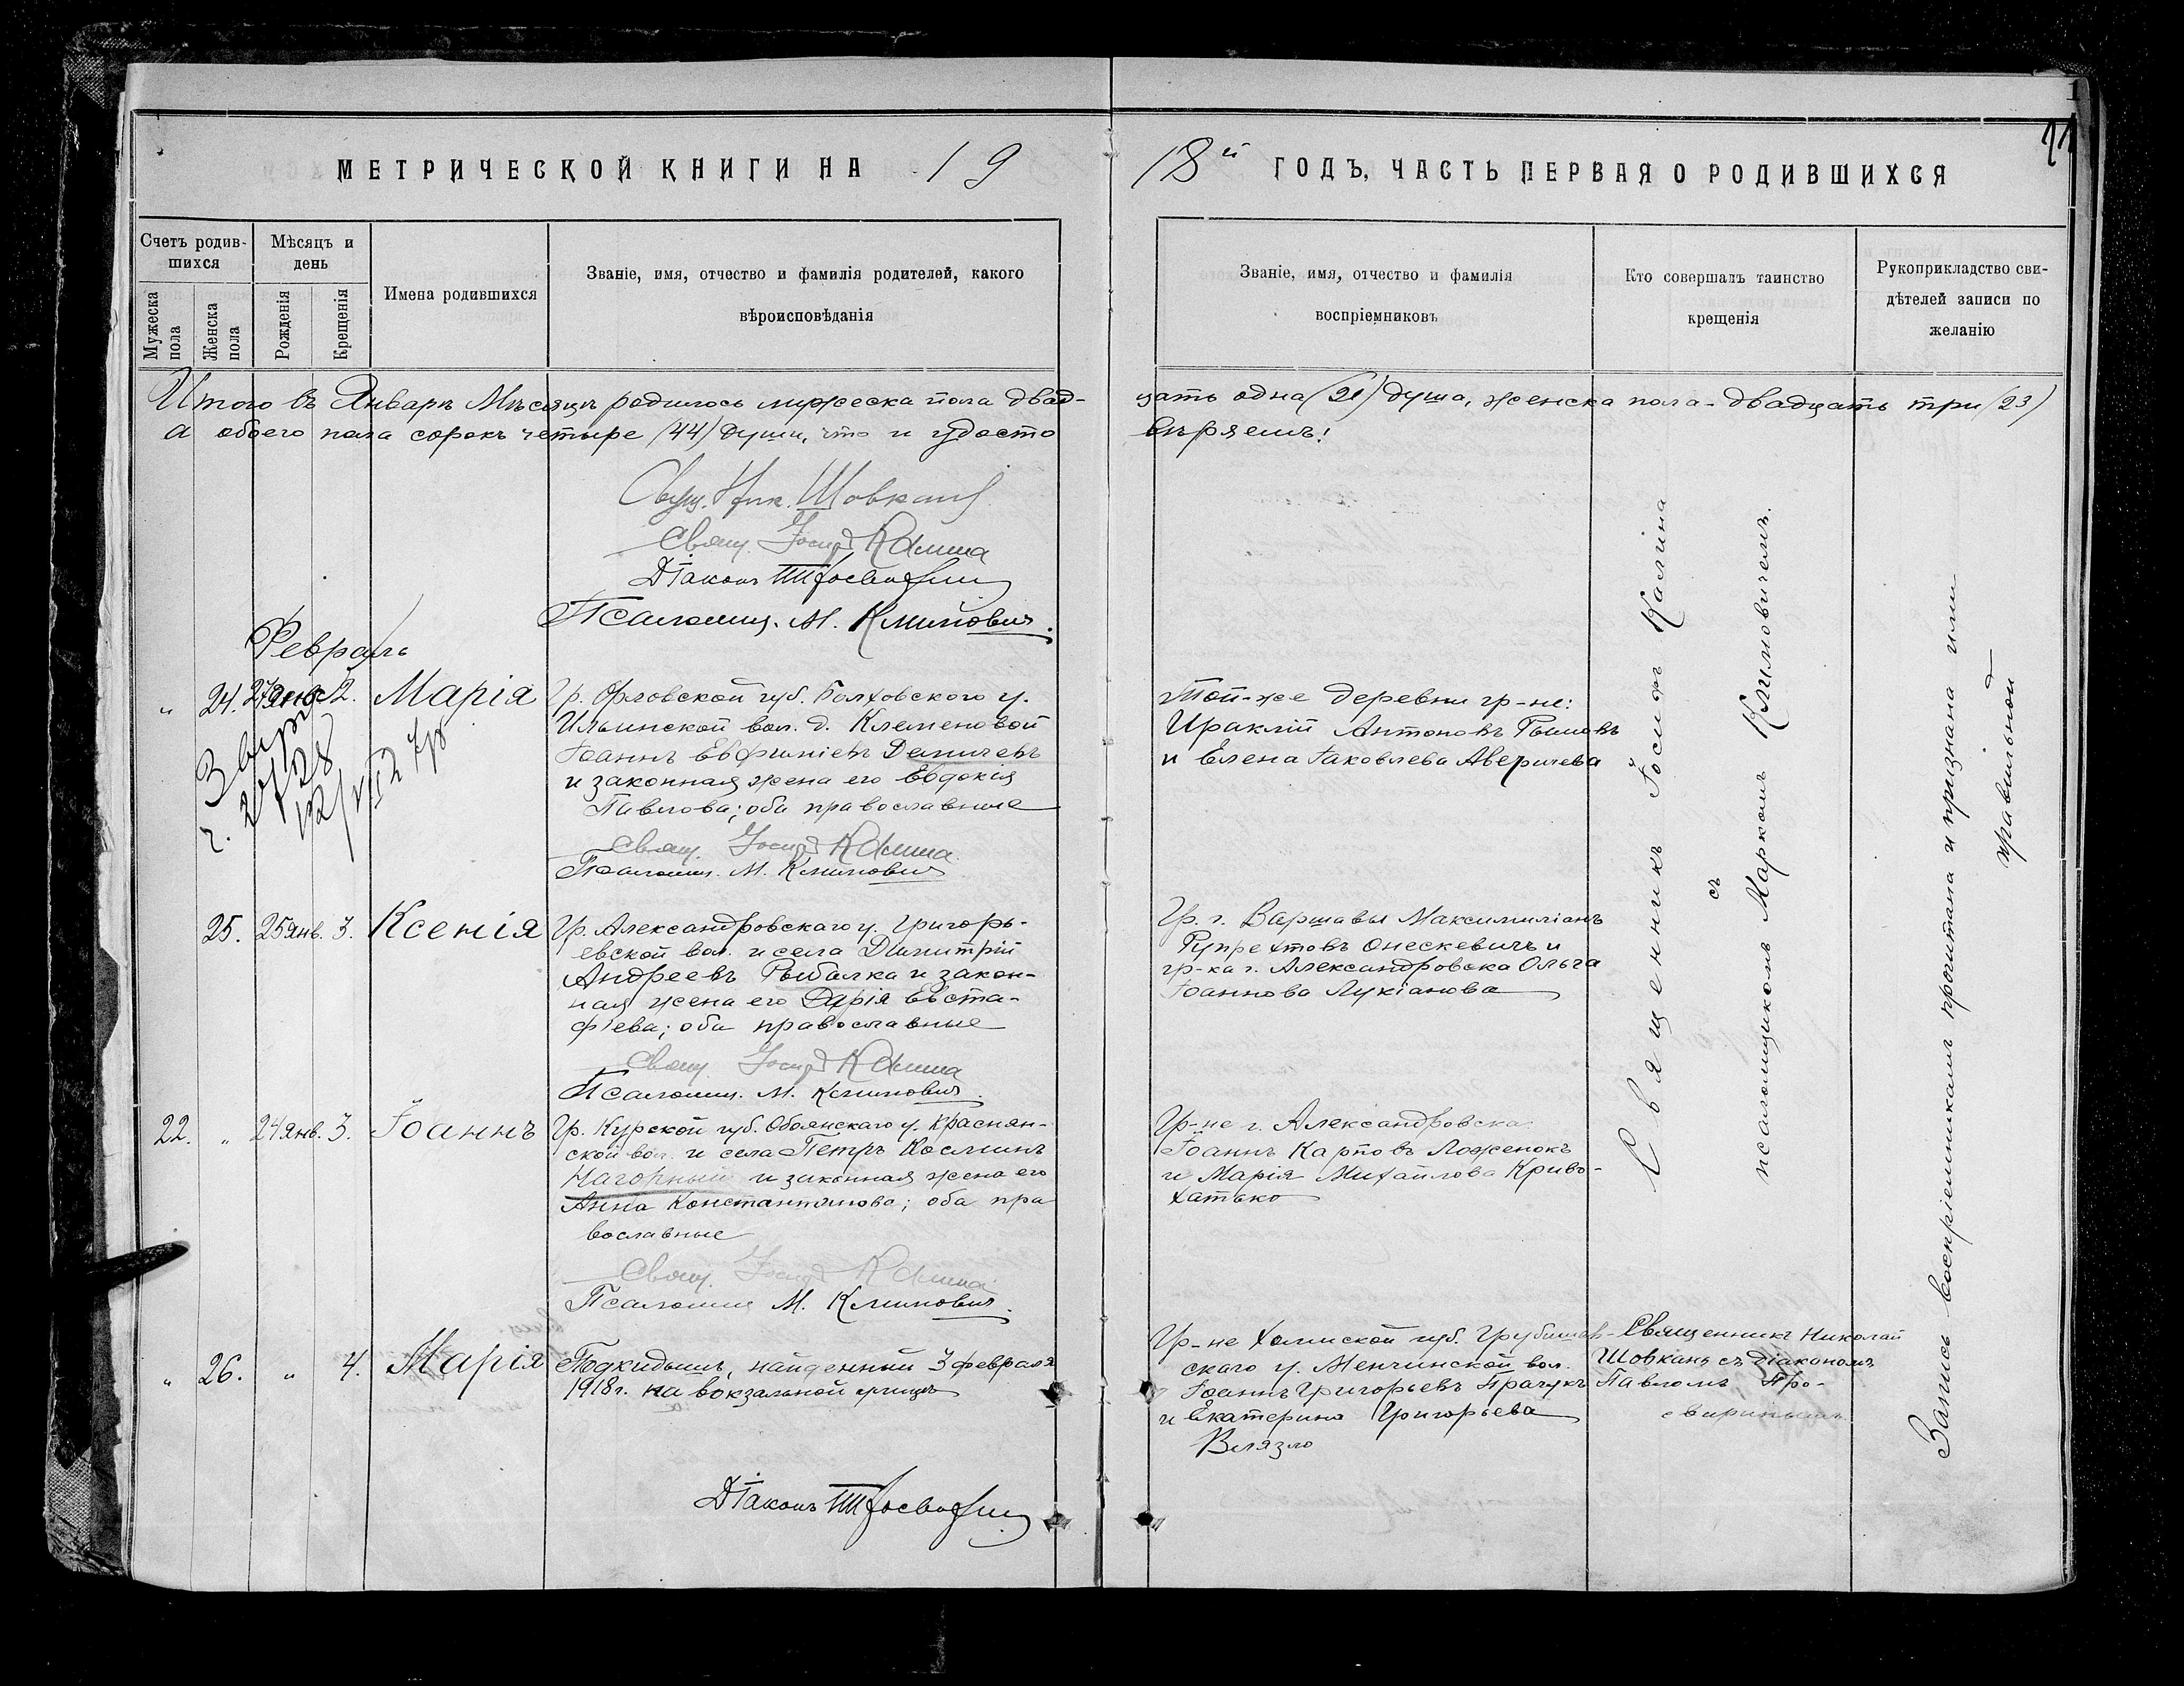 МЕТРИЧЕСКОЙ КНИГИ НА 19
18й ГОДЪ, ЧАСТЬ ПЕРВАЯ О РОДИВШИХСЯ
Счетъ родив-
шихся
Мужеска пола
Женска пола
Мѣсяцъ и
день
Рожденія
Крещенія
Имена родившихся
Званіе, имя, отчество и фамилія родителей, какого
вѣроисповѣданія
Званіе, имя, отчество и фамилія
воспріемниковъ
Кто совершалъ таинство
крещенія
Рукоприкладство сви-
дѣтелей записи по
желанію
Итого въ Январѣ Мѣсяцѣ родилось мужеска пола двад-
цать одна (21) душа, женска пола - двадцать три (23)
а обоего пола сорокъ четыре (44) души, что и удосто
вѣряемъ!
Свящ. Ник. Шовкань
Свящ. Іосиф Калина
Діаконъ
Псаломщ. М. Климовичъ.
Февраль
„ 24. 27 янв. 2. Марія
Гр. Орловской губ. Болховского у.
Ильинской вол. д. Клеменовой
Іоаннъ Евфиміевъ Демичевъ
и законная жена его Евдокія
Павлова; оба православные
Свящ. Іосиф Калина
Псаломщ. М. Климовичъ
Той-же деревни гр-не:
Ираклій Антоновъ
и Елена Іаковлева Аверичева
25. 25 янв. 3. Ксенія
Гр. Александровскаго у. Григорь-
евской вол. и села Димитрій
Андреевъ Рыбалка и закон-
ная жена его Дарія Евста-
фіева; оба православные
Свящ. Іосиф Калина
Псаломщ. М. Климовичъ.
Гр. г. Варшавы Максимиліанъ
Рупрехтовъ Онескевичъ и
гр-ка г. Александровска Ольга
Іоаннова Лукіанова
22. „ 24 янв. 3. Іоаннъ
Гр. Курской губ. Обоянскаго у. Краснян-
ской вол. и села Петръ Косминъ
Нагорный и законная жена его
Анна Константинова; оба пра
вославные
Свящ. Іосиф Калина
Псаломщ М. Климовичъ.
Гр-не г. Александровска
Іоаннъ Карповъ Ложенокъ
и Марія Михайлова Криво-
хатько
„ 26. „ 4. Марія
Подкидышъ, найденный 3 февраля
1918 г. на вокзальной улицѣ
Діаконъ
Гр-не Холмской губ. Грубешов-
скаго у. Менчинской вол.
Іоаннъ Григорьевъ Прачукъ
и Екатерина Григорьева
Вслязло
Священникъ Николай
Шовкань съ діакономъ
Павломъ Про-
свиринымъ
Священникъ Іосифъ Калина
съ
псаломщикомъ Маркомъ Климовичемъ.
Запись воспріемникамъ прочитана и признана ими
правильной